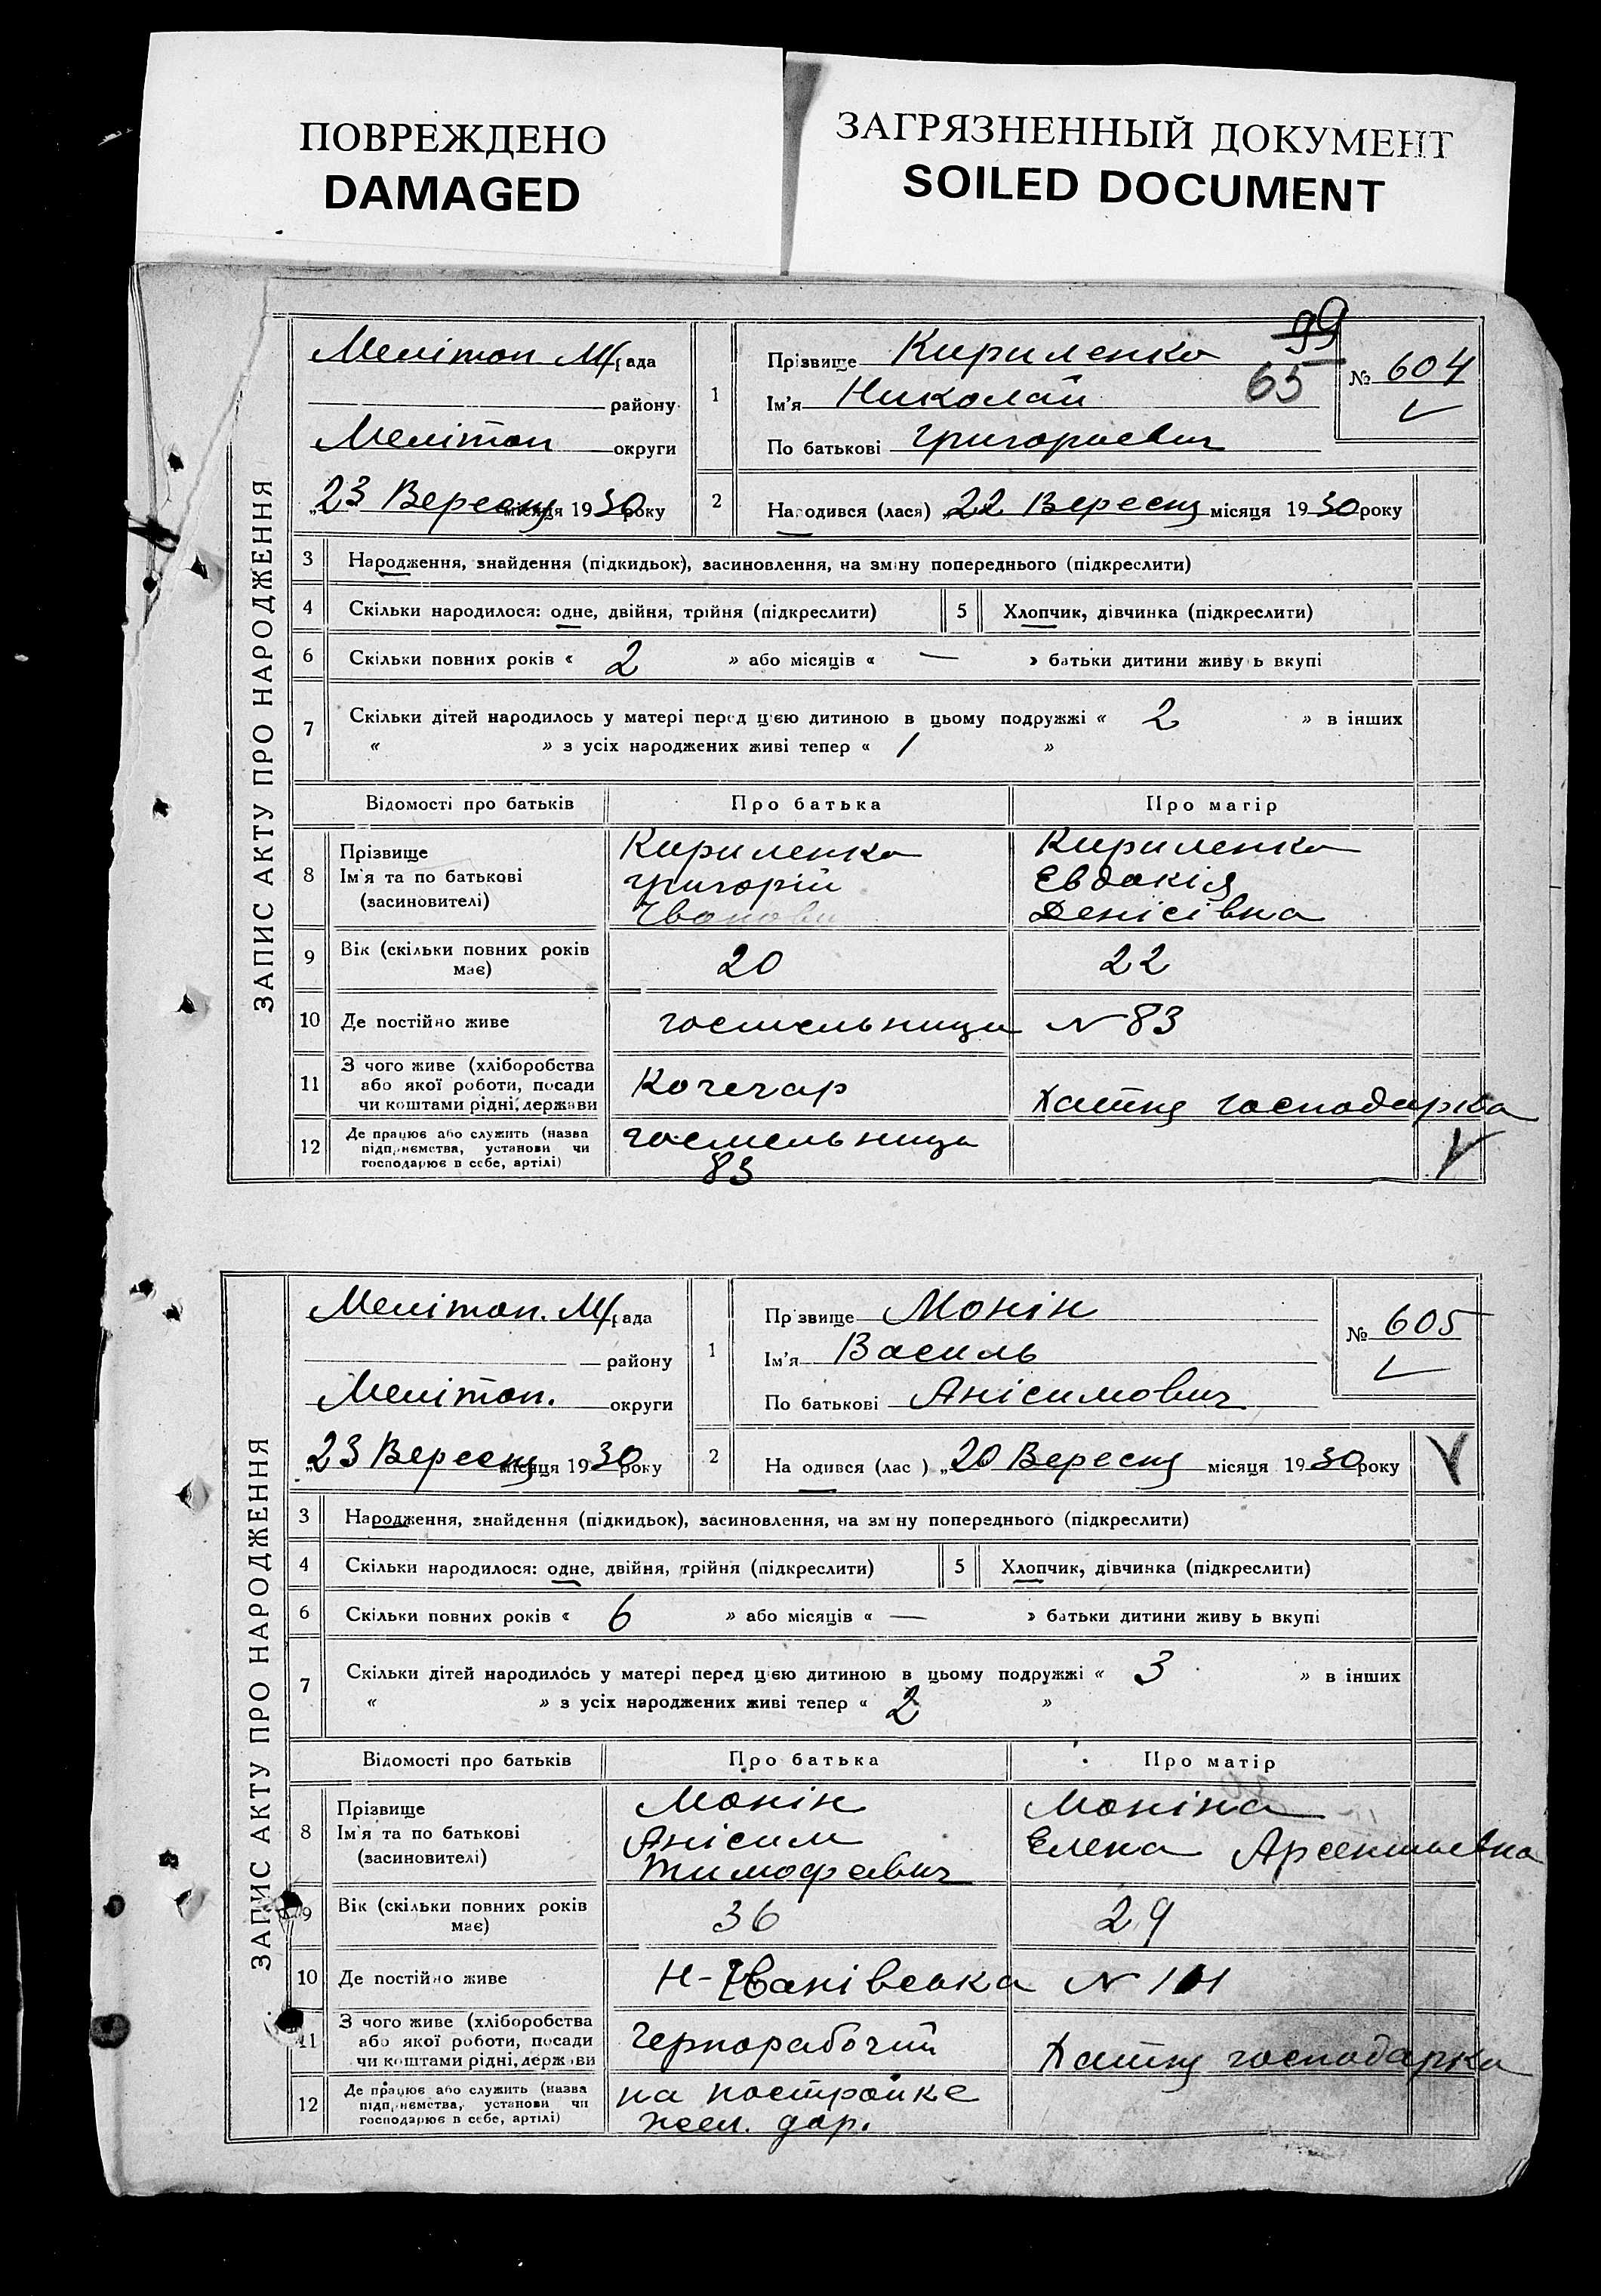 ПОВРЕЖДЕНО
DAMAGED
ЗАГРЯЗНЕННЫЙ ДОКУМЕНТ
SOILED DOCUMENT
99
65
ЗАПИС АКТУ ПРО НАРОДЖЕННЯ
Мелітоп М/рада
району
Мелітоп округи
„23 Вересня місяця 1930 року
1
Прізвище Кириленко
Ім'я Николай
По батькові Григориевич
№ 604
2
Народився (лася) „22 Вересня місяця 1930 року
3 Народження, знайдення (підкидьок), засиновлення, на зміну попереднього (підкреслити)
4 Скільки народилося: одне, двійня, трійня (підкреслити) 5 Хлопчик, дівчинка (підкреслити)
6 Скільки повних років « 2 » або місяців « — » батьки дитини живу ь вкупі
7 Скільки дітей народилось у матері перед цією дитиною в цьому подружжі « 2 » в інших
« » з усіх народжених живі тепер « 1 »
Відомості про батьків Про батька Про матір
8 Прізвище
Ім'я та по батькові
(засиновителі)
Кириленко
Григорій
Іванови
Кириленко
Евдокія
Денісівна
9 Вік (скільки повних років
має)
20 22
10 Де постійно живе госмельница № 83
11 З чого живе (хліборобства
або якої роботи, посади
чи коштами рідні, держави
Кочегар
Хатня господарка
12 Де працює або служить (назва
підприємства, установи чи
господарює в себе, артілі)
госмельница
83
ЗАПИС АКТУ ПРО НАРОДЖЕННЯ
Мелітоп. М/рада
району
Мелітоп. округи
„23 Вересня місяця 1930 року
1
Прізвище Монін
Ім'я Василь
По батькові Анісимович
№ 605
2
На одився (лас ) „20 Вересня місяця 1930 року
3 Народження, знайдення (підкидьок), засиновлення, на зм ну попереднього (підкреслити)
4 Скільки народилося: одне, двійня, трійня (підкреслити) 5 Хлопчик, дівчинка (підкреслити)
6 Скільки повних років « 6 » або місяців « — » батьки дитини живу ь вкупі
7 Скільки дітей народилось у матері перед цією дитиною в цьому подружжі « 3 » в інших
« » з усіх народжених живі тепер « 2 »
Відомості про батьків Про батька Про матір
8 Прізвище
Ім'я та по батькові
(засиновителі)
Монін
Анісим
Тимофеевич
Моніна
Елена Арсентьевна
9 Вік (скільки повних років
має)
36 29
10 Де постійно живе Н-Іванівська № 101
11 З чого живе (хліборобства
або якої роботи, посади
чи коштами рідні, держави
Чернорабочий
Хатня господарка
12 Де працює або служить (назва
підприємства, установи чи
господарює в себе, артілі)
на постройке
жел. дор.